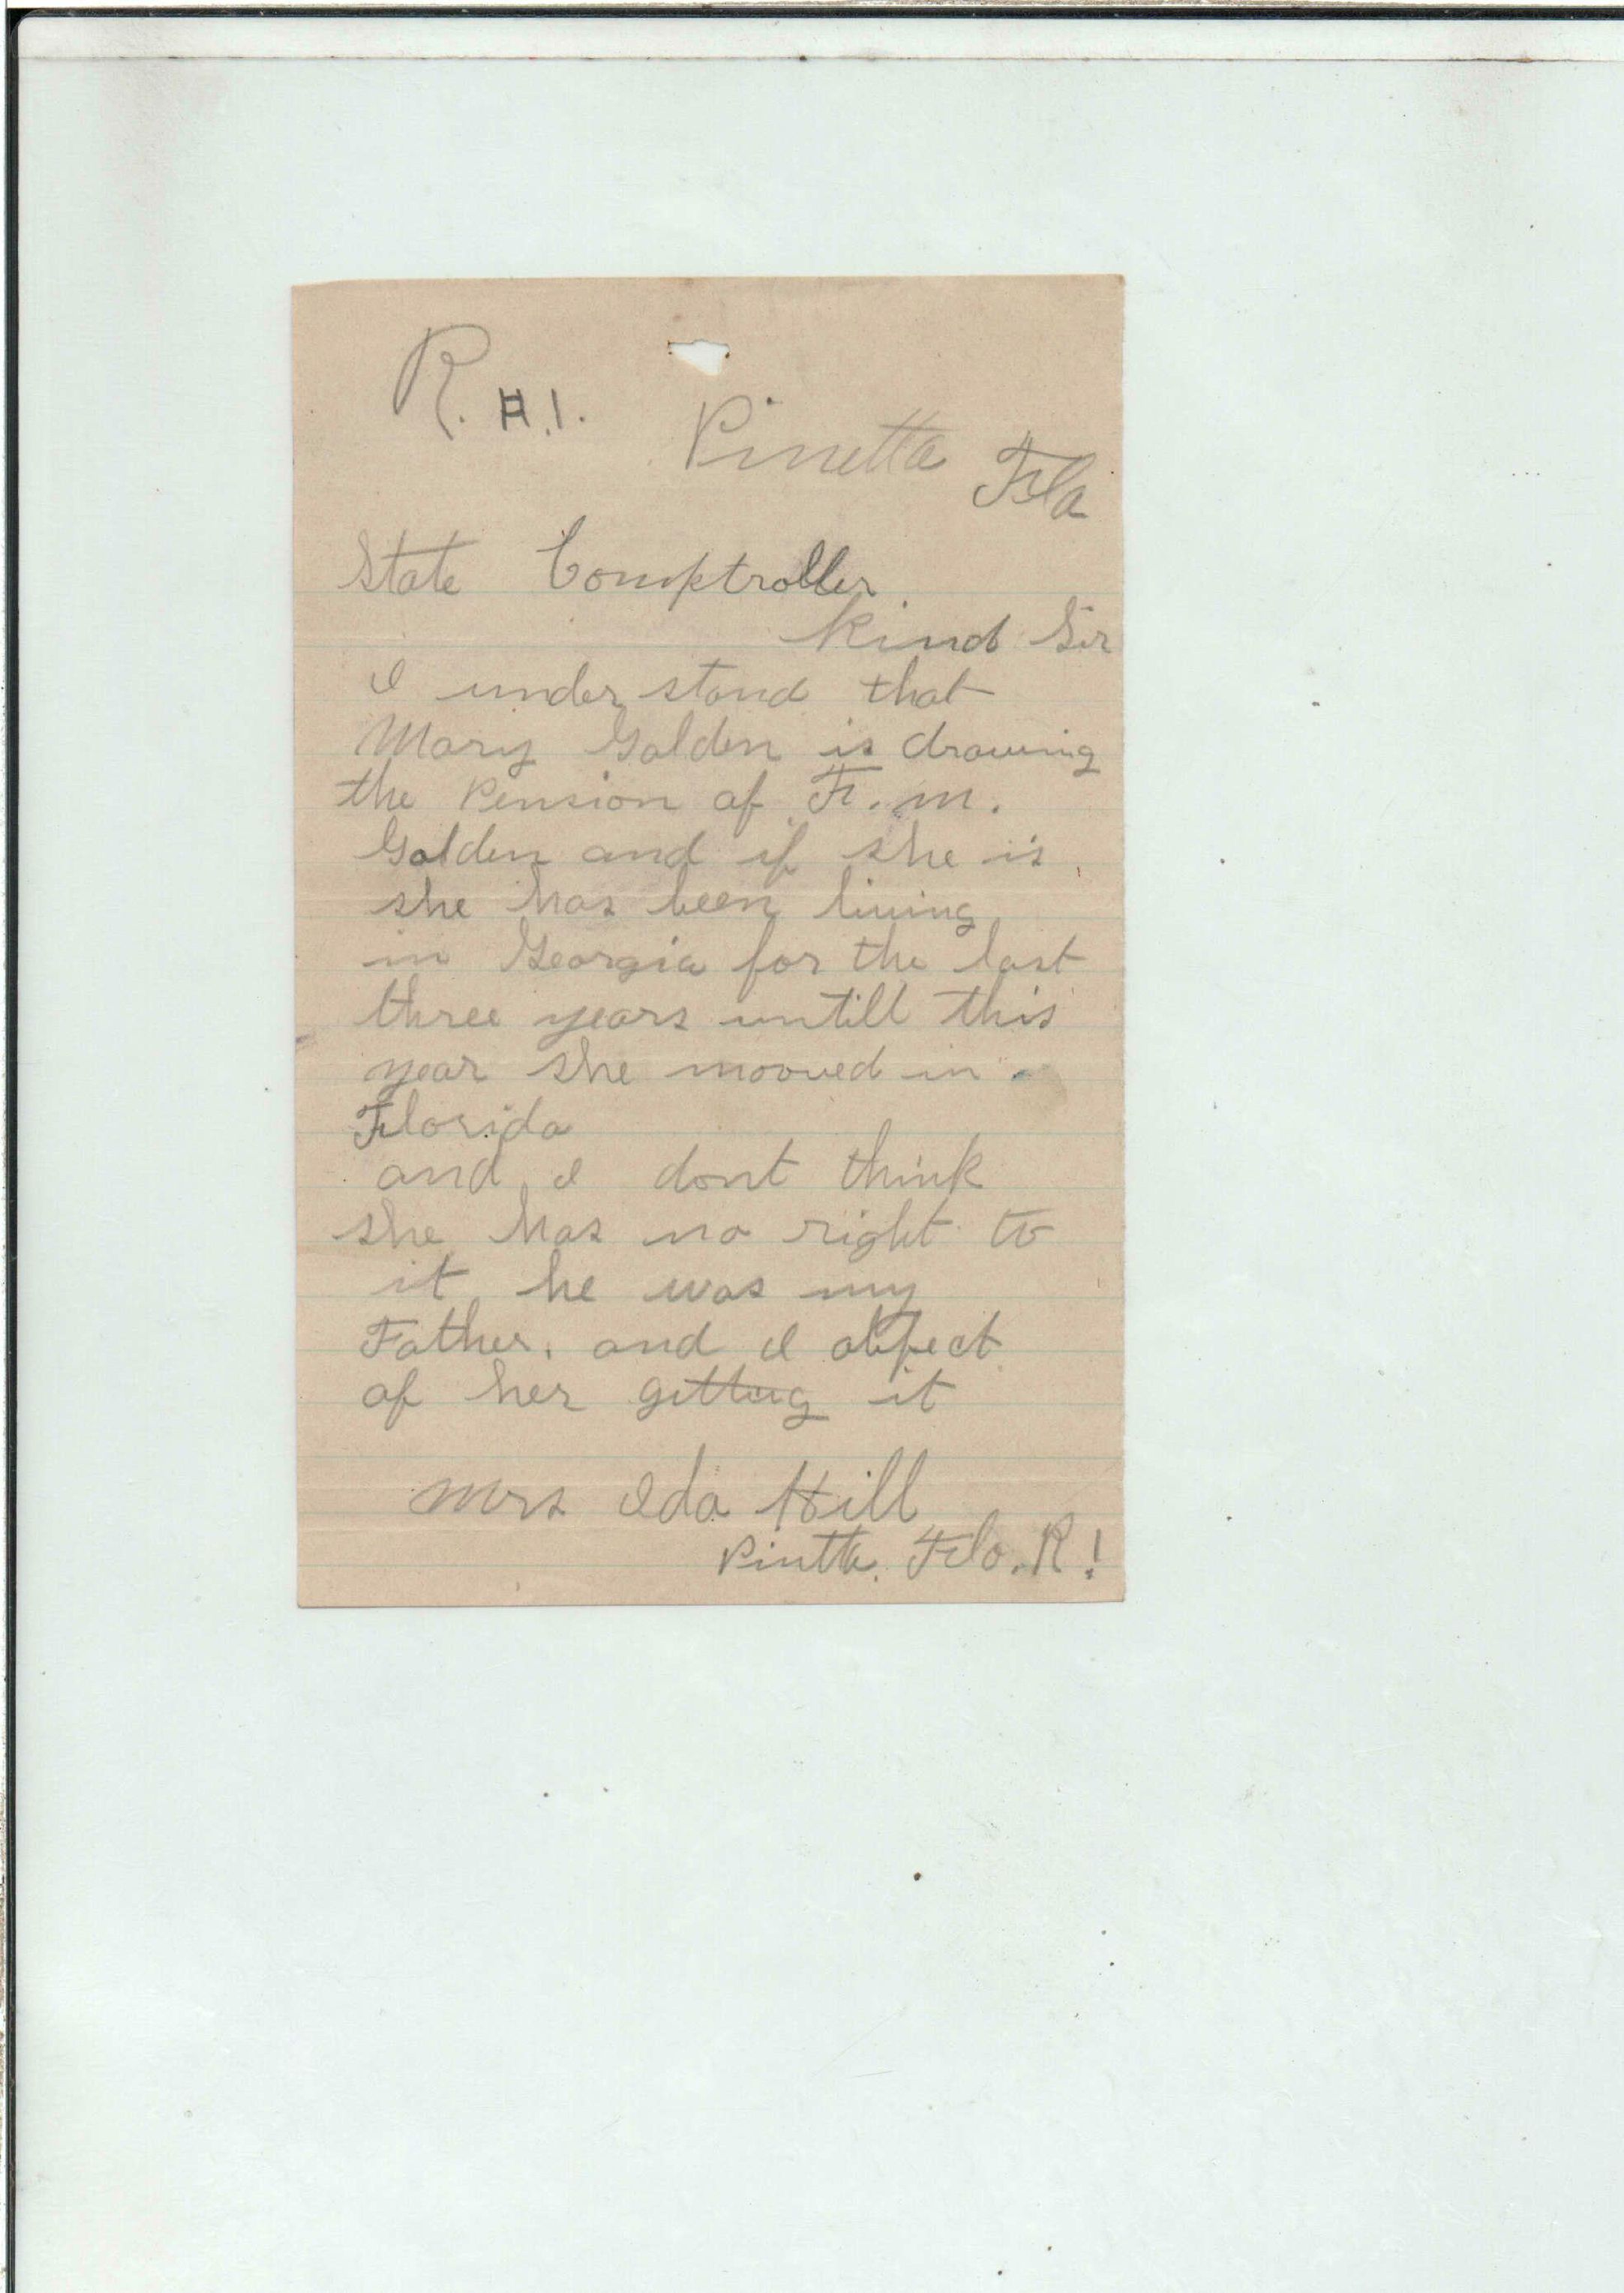 R. #.1.
Pinetta Fla
State Comptroller
Kind Sir
I under stand that
Mary Golden is drawing
the Pension of F. M.
Golden and if she is
she has been living
in Georgia for the last
three years untill this
year she mooved in
Florida
and I dont think
she has no right to
it he was my
Father. and I object
of her getting it
Mrs Ida Hill
Pintta. Fla. R!